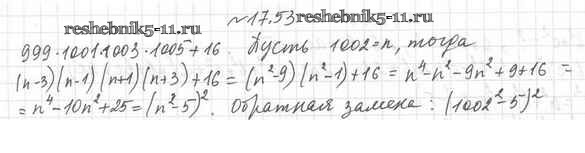 reshebnik5-11.ru
№17.53
reshebnik5-11.ru
999·1001·1003·1005+16. Пусть 1002=n, тогда
(n-3)(n-1)(n+1)(n+3)+16=(n²-9)(n²-1)+16=n⁴-n²-9n²+9+16=
=n⁴-10n²+25=(n²-5)². Обратная замена: (1002²-5)²